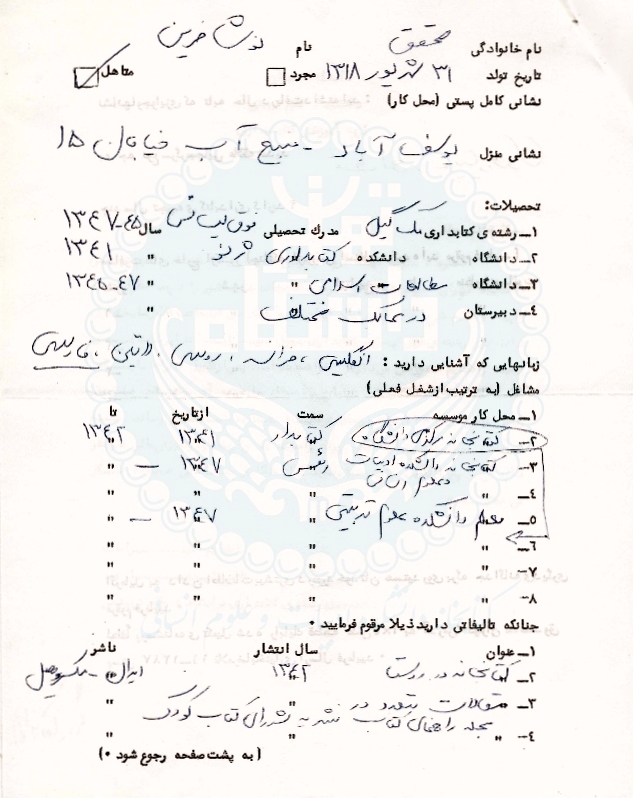 نام خانوادگی محقق نام نوش آفرین
تاریخ تولد ۳۱ شهریور ۱۳۱۸ مجرد متاهل
نشانی کامل پستی (محل کار)
نشانی منزل یوسف آباد - منبع آب خیابان ۱۵
تحصیلات:
۱ــ رشته ی کتابداری مک گیل مدرك تحصیلی فوق لیسانس سال ۴۵-۱۳۴۷
۲ــ دانشگاه دانشکده کتابداری " ۱۳۴۱
۳ــ دانشگاه مطالعات اسلامی " " ۴۷-۱۳۴۵
۴ــ دبیرستان در ممالک مختلف "
زبانهایی که آشنایی دارید : انگلیسی، فرانسه، روسی، لاتین، فارسی
مشاغل (به ترتیب ازشغل فعلی)
۱ــ محل کار موسسه سمت ازتاریخ تا
۲ــ کتابخانه مرکزی دانشگاه کتابدار ۱۳۴۱ ۱۳۴۲
۳ــ کتابخانه دانشکده ادبیات رئیس ۱۳۴۷ — "
و علوم انسانی
۴ــ " " " "
۵ــ معلم دانشکده علوم تربیتی " ۱۳۴۷ — "
۶ــ " " " "
۷ــ " " " "
۸ــ " " " "
چنانکه تالیفاتی دارید ذیلا مرقوم فرمایید •
۱ــ عنوان سال انتشار ناشر
۲ــ کتابخانه در روستا ۱۳۴۲ ایران -
۳ــ مقالات متعدد در " "
۴ــ " مجله راهنمای کتاب نشریه شورای کتاب کودک "
(به پشت صفحه رجوع شود •)